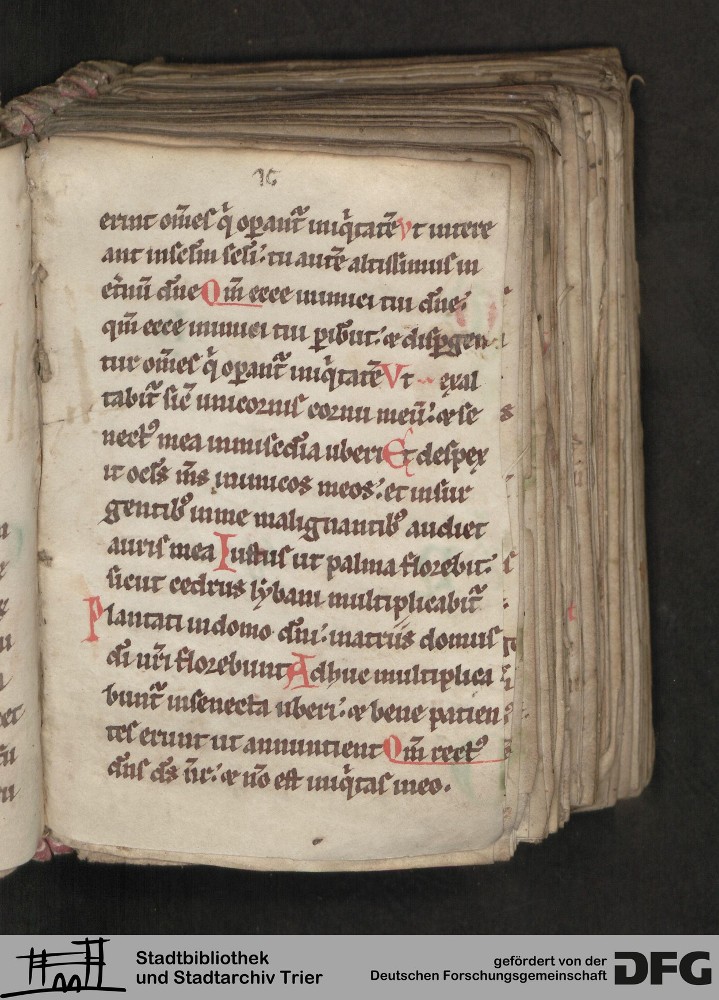 16
erint om̄es q̇ opant̄ iniq̇tatē Vt intere
ant in sclm scli: tu autē altissimus in
et̄nū dn̄e Qm̄ ecce inimici tui dn̄e:
qm̄ ecce inimici tui ꝑibūt: & disꝑgen
tur om̄es q̇ opant̄ iniq̇tatē Vt exal
tabit̄ sic̄ unicornis cornu meū: & se
nect⁹ mea in misc̄dia uberi Et despex
it ocls m̄s inimicos meos: et insur
gentib⁹ in me malignantib⁹ audiet
auris mea Iustus ut palma florebit:
sicut cedrus lybani multiplicabit̄
Plantati in domo dn̄i: in atriis domus
di nr̄i florebunt Adhuc multiplica
bunt̄ in senecta uberi: & bene patien
tes erunt ut annuntient Qm̄ rect⁹
dn̄s ds n̄r: & n̄o est iniq̇tas in eo.
Stadtbibliothek
und Stadtarchiv Trier
gefördert von der
Deutschen Forschungsgemeinschaft
DFG